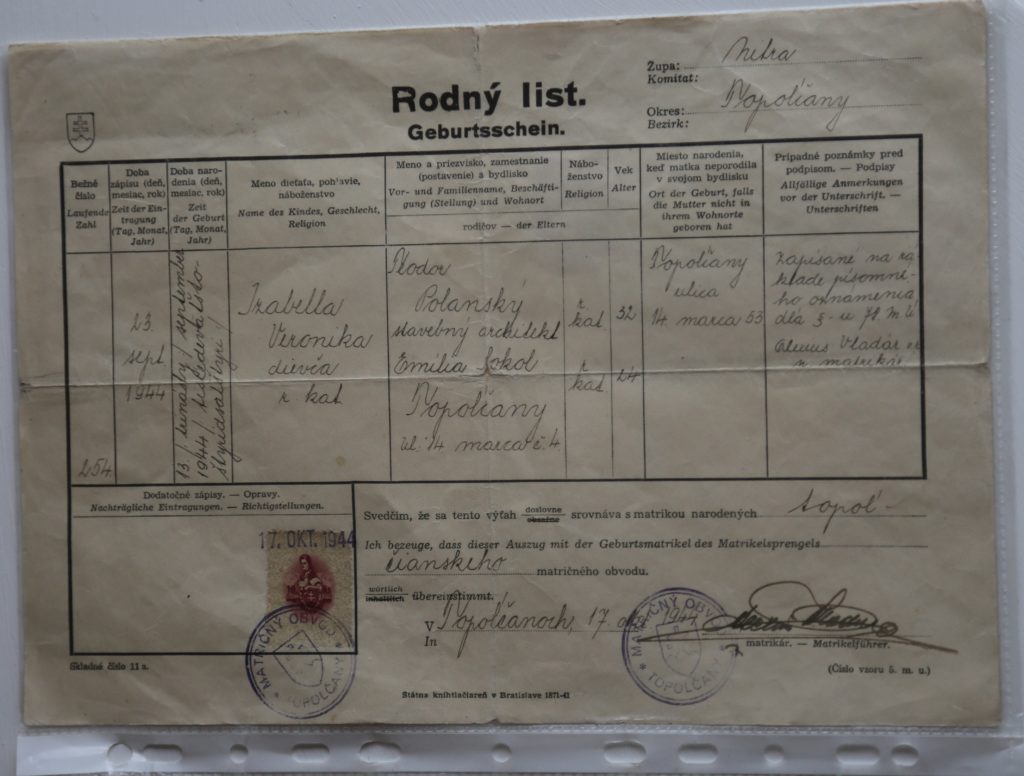 Rodný list.
Geburtsschein.
Župa: Nitra
Komitat:
Okres: Topolčany
Bezirk:
Bežné číslo
Laufende Zahl
Doba zápisu (deň, mesiac, rok)
Zeit der Eintragung (Tag, Monat, Jahr)
Doba narodenia (deň, mesiac, rok)
Zeit der Geburt (Tag, Monat, Jahr)
Meno dieťaťa, pohlavie, náboženstvo
Name des Kindes, Geschlecht, Religion
Meno a priezvisko, zamestnanie
(postavenie) a bydlisko
Vor- und Familienname, Beschäftigung (Stellung) und Wohnort
rodičov — der Eltern
Náboženstvo
Religion
Vek
Alter
Miesto narodenia, keď matka neporodila v svojom bydlisku
Ort der Geburt, falls die Mutter nicht in ihrem Wohnorte geboren hat
Prípadné poznámky pred podpisom. — Podpisy
Allfällige Anmerkungen vor der Unterschrift. — Unterschriften
254.
23.
sept
1944
13 / trinásty / september
1944 / tisícdeväťsto-
štyridsaťštyri /
Izabella
Veronika
dievča
r. kat
Polanský
stavebný architekt
Emilia Sokol
Topolčany
ul. 14 marca č. 4.
r
kat
r
kat
32
24
Topolčany
ulica
14 marca 53
Zapísané na zá
klade písomné-
ho oznámenia
dľa §-u
Vladár
matrikár
Dodatočné zápisy. — Opravy.
Nachträgliche Eintragungen. — Richtigstellungen.
17. OKT. 1944
MATRIČNÝ OBVOD
* TOPOLČANY *
Svedčím, že sa tento výťah doslovne obsažne srovnáva s matrikou narodených topoľ-
Ich bezeuge, dass dieser Auszug mit der Geburtsmatrikel des Matrikelsprengels
čianskeho matričného obvodu.
wörtlich inhaltlich übereinstimmt.
V Topolčanoch, 17 okt. 1944
In
MATRIČNÝ OBVOD
* TOPOLČANY *
matrikár. — Matrikelführer.
Skladné číslo 11 a.
(Číslo vzoru 5. m. u.)
Štátna knihtlačiareň v Bratislave 1871-41